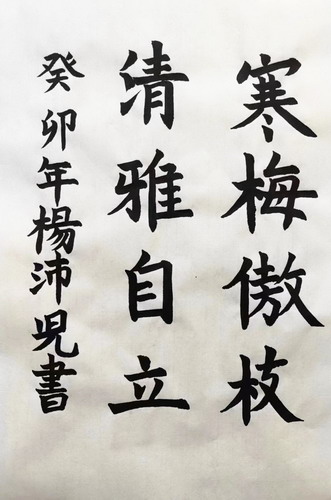 寒梅傲枝
清雅自立
癸卯年楊沛児書